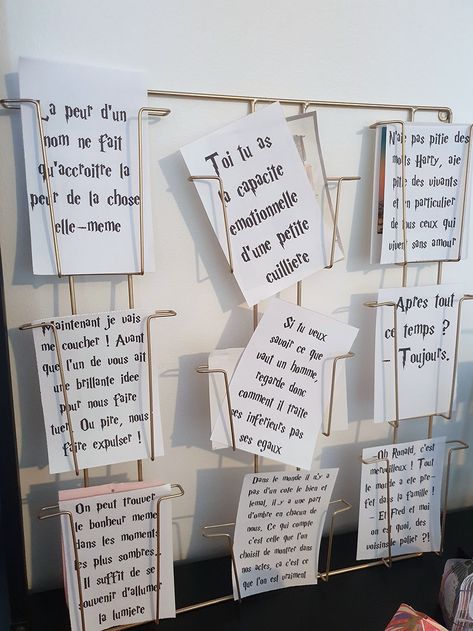 La peur d'un
nom ne fait
qu'accroitre la
peur de la chose
elle-meme
Toi tu as
la capacite
emotionnelle
d'une petite
cuilliere
N'aie pas pitie des
morts Harry, aie
pitie des vivants
et en particulier
de tous ceux qui
vivent sans amour
Maintenant je vais
me coucher ! Avant
que l'un de vous ait
une brillante idee
pour nous faire
tuer. Ou pire, nous
faire expulser !
Si tu veux
savoir ce que
vaut un homme,
regarde donc
comment il traite
ses inferieurs pas
ses egaux
Apres tout
ce temps ?
- Toujours.
On peut trouver
le bonheur meme
dans les moments
les plus sombres...
Il suffit de se
souvenir d'allumer
la lumiere
Dans le monde il n'y a
pas d'un cote le bien et
le mal, il y a une part
d'ombre en chacun de
nous. Ce qui compte
c'est celle que l'on
choisit de montrer dans
nos actes, ca c'est ce
que l'on est vraiment
Oh Ronald, c'est
merveilleux ! Tout
le monde a ete pre-
fet dans la famille !
- Et Fred et moi
on est quoi, des
voisins de palier ?!